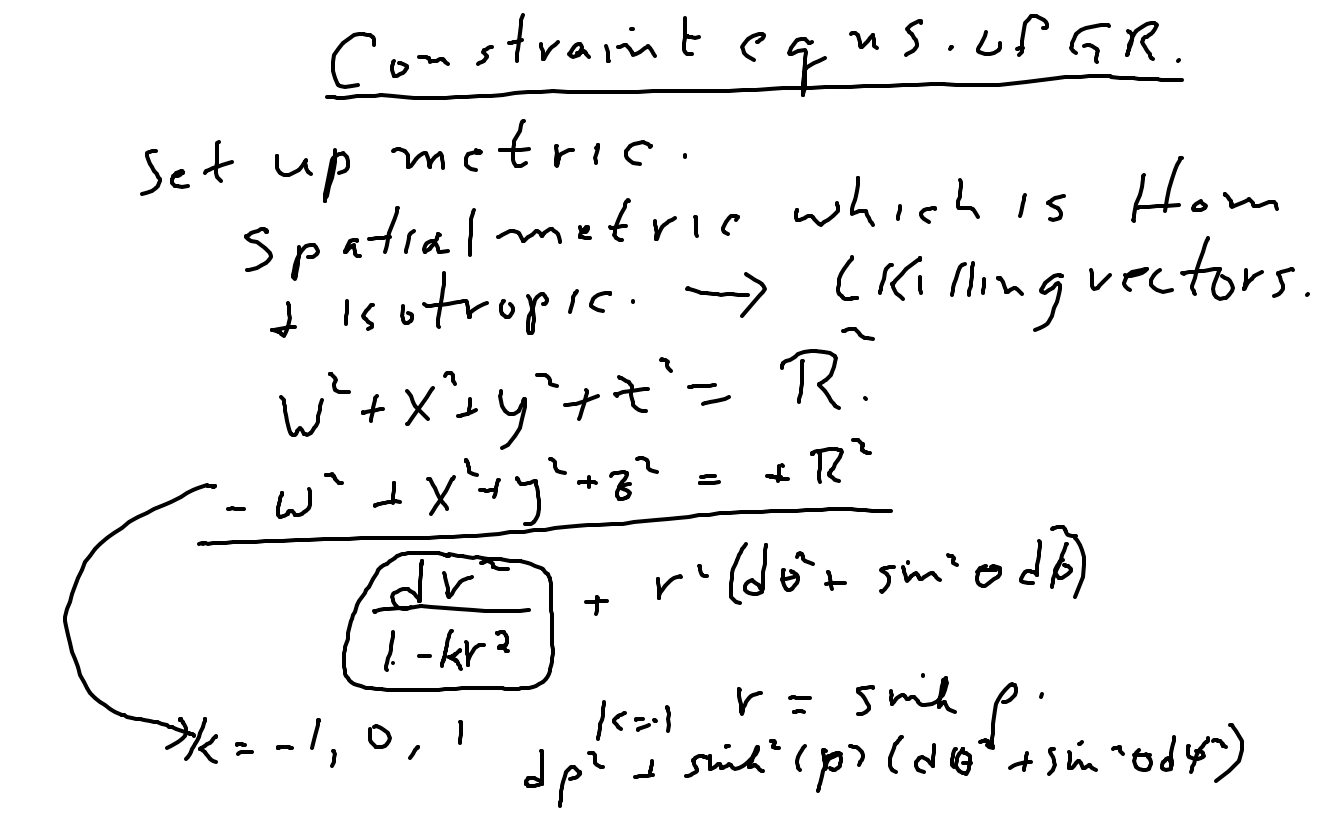 Constraint eqns. of GR.
Set up metric.
Spatial metric which is Hom
+ isotropic. → ( Killing vectors.
w² + x² + y² + z² = R².
- w² + x² + y² + z² = + R²
dr² / (1 - kr²) + r² (dθ² + sin² θ dϕ²)
k = -1, 0, 1
k=-1 r = sinh ρ.
dρ² + sinh² (ρ) (dθ² + sin² θ dϕ²)